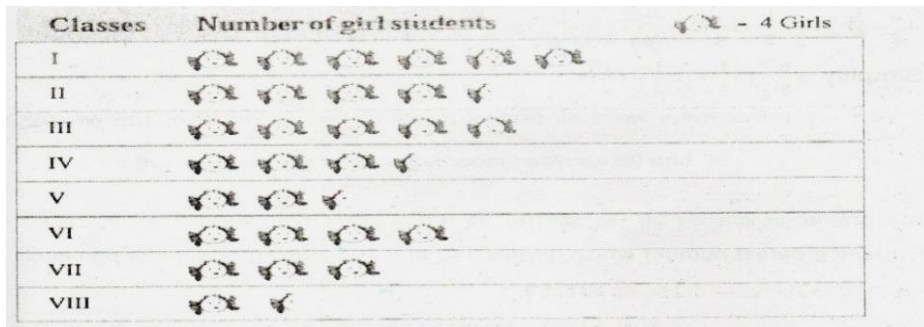 Classes Number of girl students - 4 Girls
I
II
III
IV
V
VI
VII
VIII